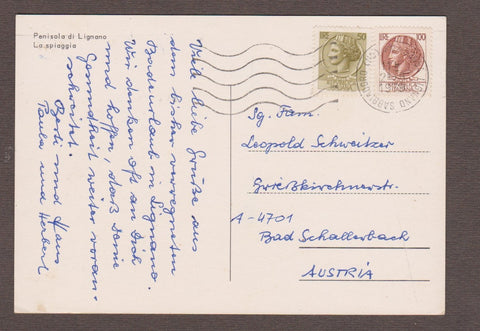 Penisola di Lignano
La spiaggia
Viele liebe Grüße aus
dem bisher verregneten
Badeurlaub in Lignano.
Wir denken oft an Dich
und hoffen, daß Deine
Gesundheit weiter voran-
schreitet.
und Hans
Paula und Herbert
50
LIRE 100
LIGNANO SABBIADORO
Sg. Fam.
Leopold Schweitzer
Grießkirchnerstr.
A-4701
Bad Schallerbach
AUSTRIA